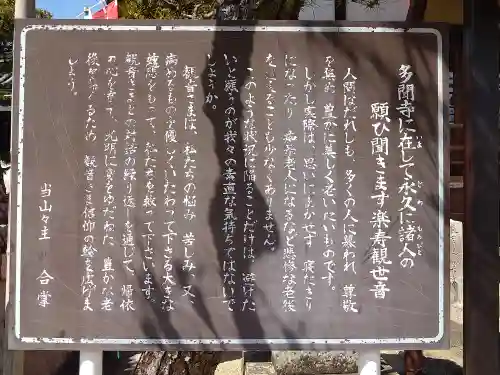 多聞寺に在して永久に諸人の
願ひ聞きます楽寿観世音
人間はだれしも、多くの人に慕われ、尊敬
を集め、豊かに美しく老いたいものです。
しかし実際は、思いにまかせず、寝たきり
になったり、老人になるなど悲惨な老後
を迎えることも少なくありません。
このような状況に陥ることだけは、避けた
いと願うのが我々の素直な気持ちではないで
しょうか。
観音さまは、私たちの悩み、苦しみ、又、
病めるものを優しくいたわって下さる大きな
慈悲をもって、私たちを救って下さいます。
観音さまとの対話の繰り返しを通して、帰依
の心を育て、光明に身をゆだねた、豊かな老
後を送るため、観音さま信仰の輪を広げま
しょう。
当山々主 合掌